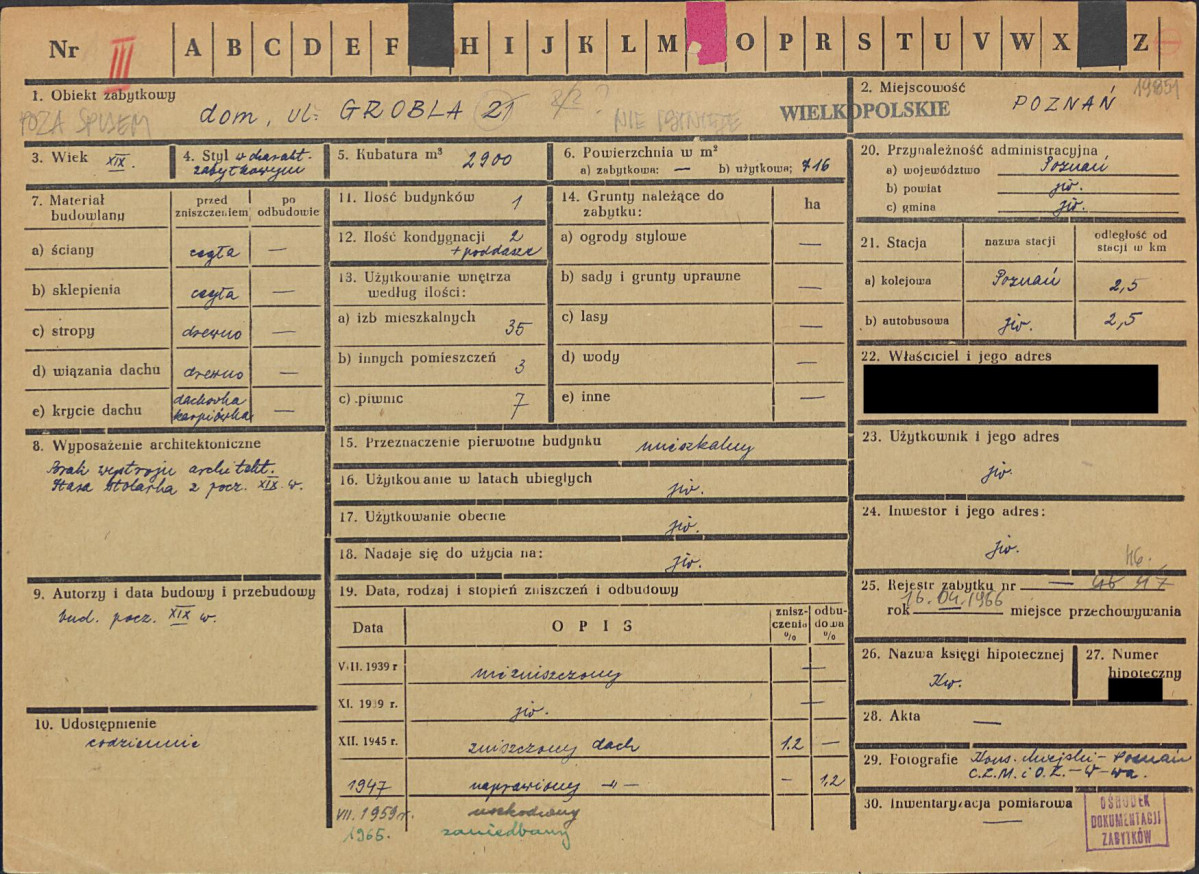 Nr III A B C D E F H I J K L M O P R S T U V W X Z
1. Obiekt zabytkowy
dom, ul. GROBLA 21 2/2 ?
POZA SPISEM
NIE ISTNIEJE
WIELKOPOLSKIE
2. Miejscowość
POZNAŃ
19851
3. Wiek XIX.
4. Styl w charakt.
zabytkowym
5. Kubatura m³ 2900
6. Powierzchnia w m²
a) zabytkowa: — b) użytkowa: 716
7. Materiał budowlany
przed zniszczeniem
po odbudowie
a) ściany cegła —
b) sklepienia cegła —
c) stropy drewno —
d) wiązania dachu drewno —
e) krycie dachu dachówka karpiówka —
8. Wyposażenie architektoniczne
Brak wystroju architekt.
Stara stolarka z pocz. XIX w.
9. Autorzy i data budowy i przebudowy
bud. pocz. XIX w.
10. Udostępnienie
codziennie
11. Ilość budynków 1
12. Ilość kondygnacji 2
+ poddasze
13. Użytkowanie wnętrza
według ilości:
a) izb mieszkalnych 35
b) innych pomieszczeń 3
c) piwnic 7
14. Grunty należące do
zabytku: ha
a) ogrody stylowe —
b) sady i grunty uprawne —
c) lasy —
d) wody —
e) inne —
15. Przeznaczenie pierwotne budynku mieszkalny
16. Użytkowanie w latach ubiegłych jw.
17. Użytkowanie obecne jw.
18. Nadaje się do użycia na: jw.
19. Data, rodzaj i stopień zniszczeń i odbudowy
Data OPIS zniszczenia % odbudowa %
VIII. 1939 r niezniszczony —
XI. 1939 r. jw. —
XII. 1945 r. zniszczony dach 12 —
1947 naprawiony —„— - 12
VII. 1959 r. uszkodzony
1965. zaniedbany
20. Przynależność administracyjna
a) województwo Poznań
b) powiat jw.
c) gmina jw.
21. Stacja nazwa stacji odległość od
stacji w km
a) kolejowa Poznań 2,5
b) autobusowa jw. 2,5
22. Właściciel i jego adres
23. Użytkownik i jego adres
jw.
24. Inwestor i jego adres:
jw.
46.
25. Rejestr zabytku nr — 46 47
rok 16.04.1966 miejsce przechowywania
26. Nazwa księgi hipotecznej
Kw.
27. Numer
hipoteczny
28. Akta —
29. Fotografie Kons. Miejski – Poznań
C.Z.M. i O.Z. – W-wa.
30. Inwentaryzacja pomiarowa
—
OŚRODEK
DOKUMENTACJI
ZABYTKÓW